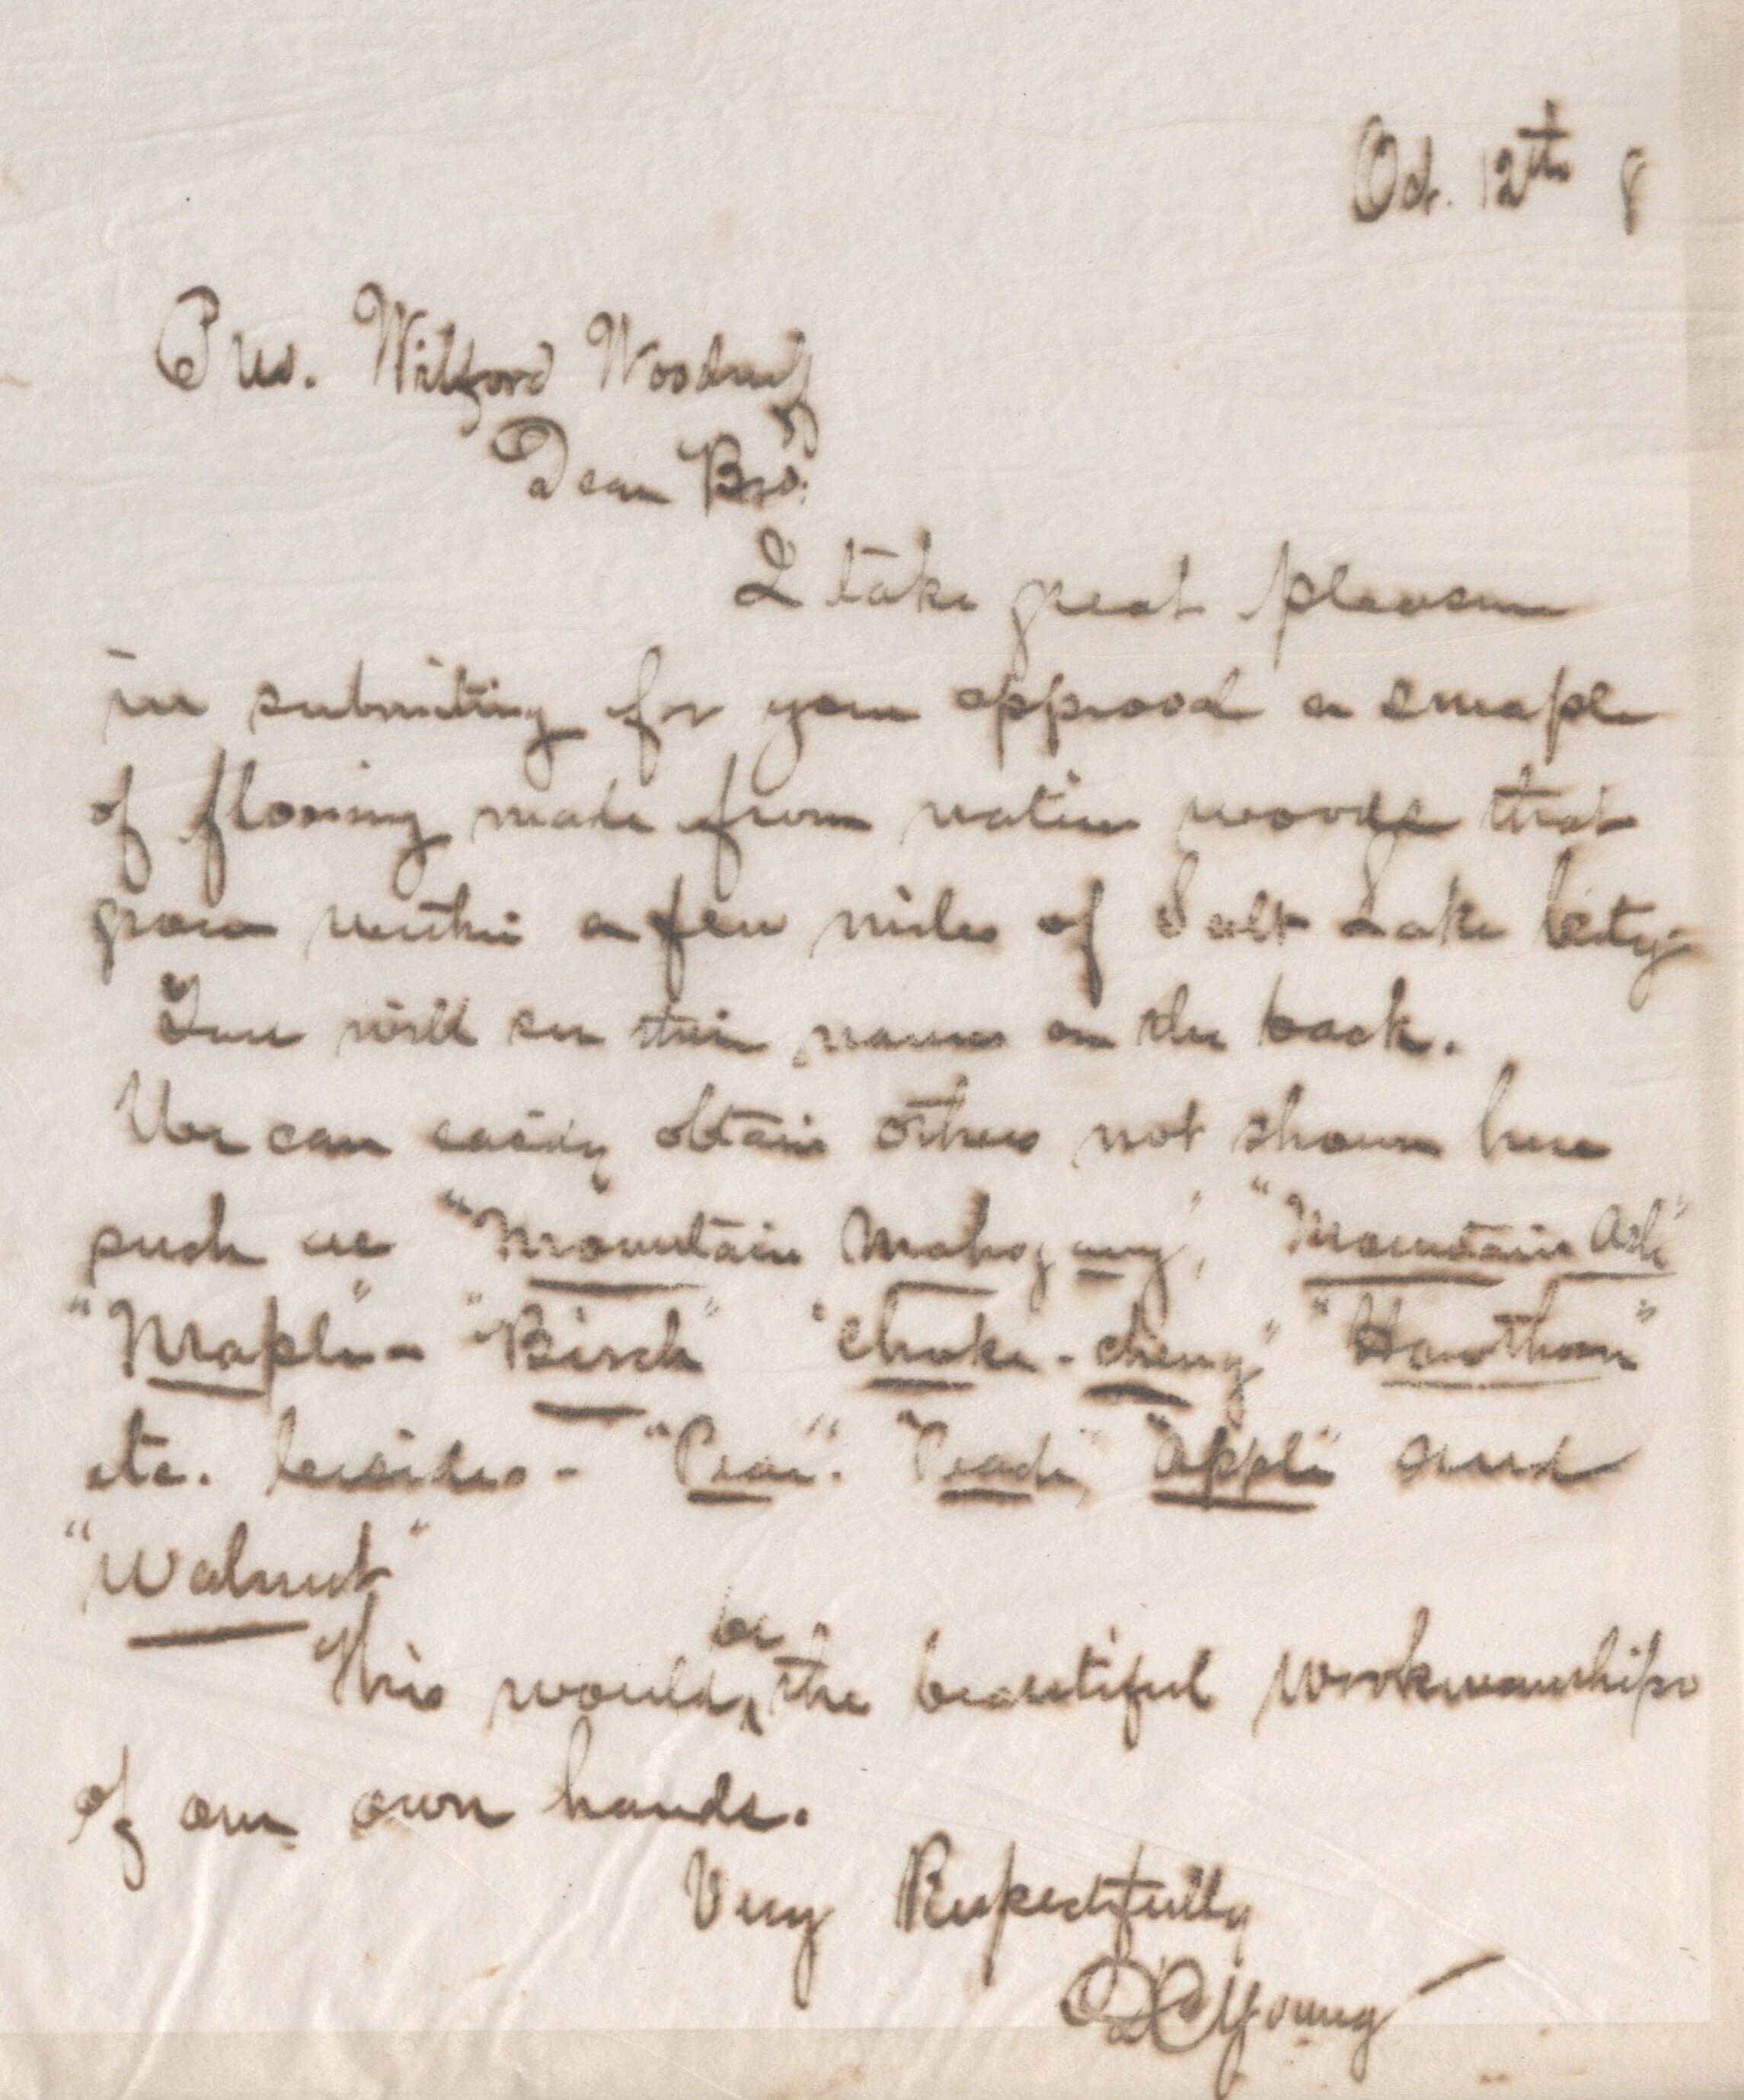 Oct. 12th 8
Pres. Wilford Woodruff
Dear Bro.
I take great pleasure
in submitting for your approval a smaple
of flooring made from native woods that
grow within a few miles of Salt Lake City
You will see their names on the back.
We can easily obtain others not shown here
such as "Mountain Mahogany", "Mountain Ash"
"Maple"- "Birch" "Choke-cherry" "Hawthorn"
etc. besides - "Pear". "Peach" "Apple" and
"Walnut"
This would be the beautiful workmanship
of our own hands.
Very Respectfully
Young